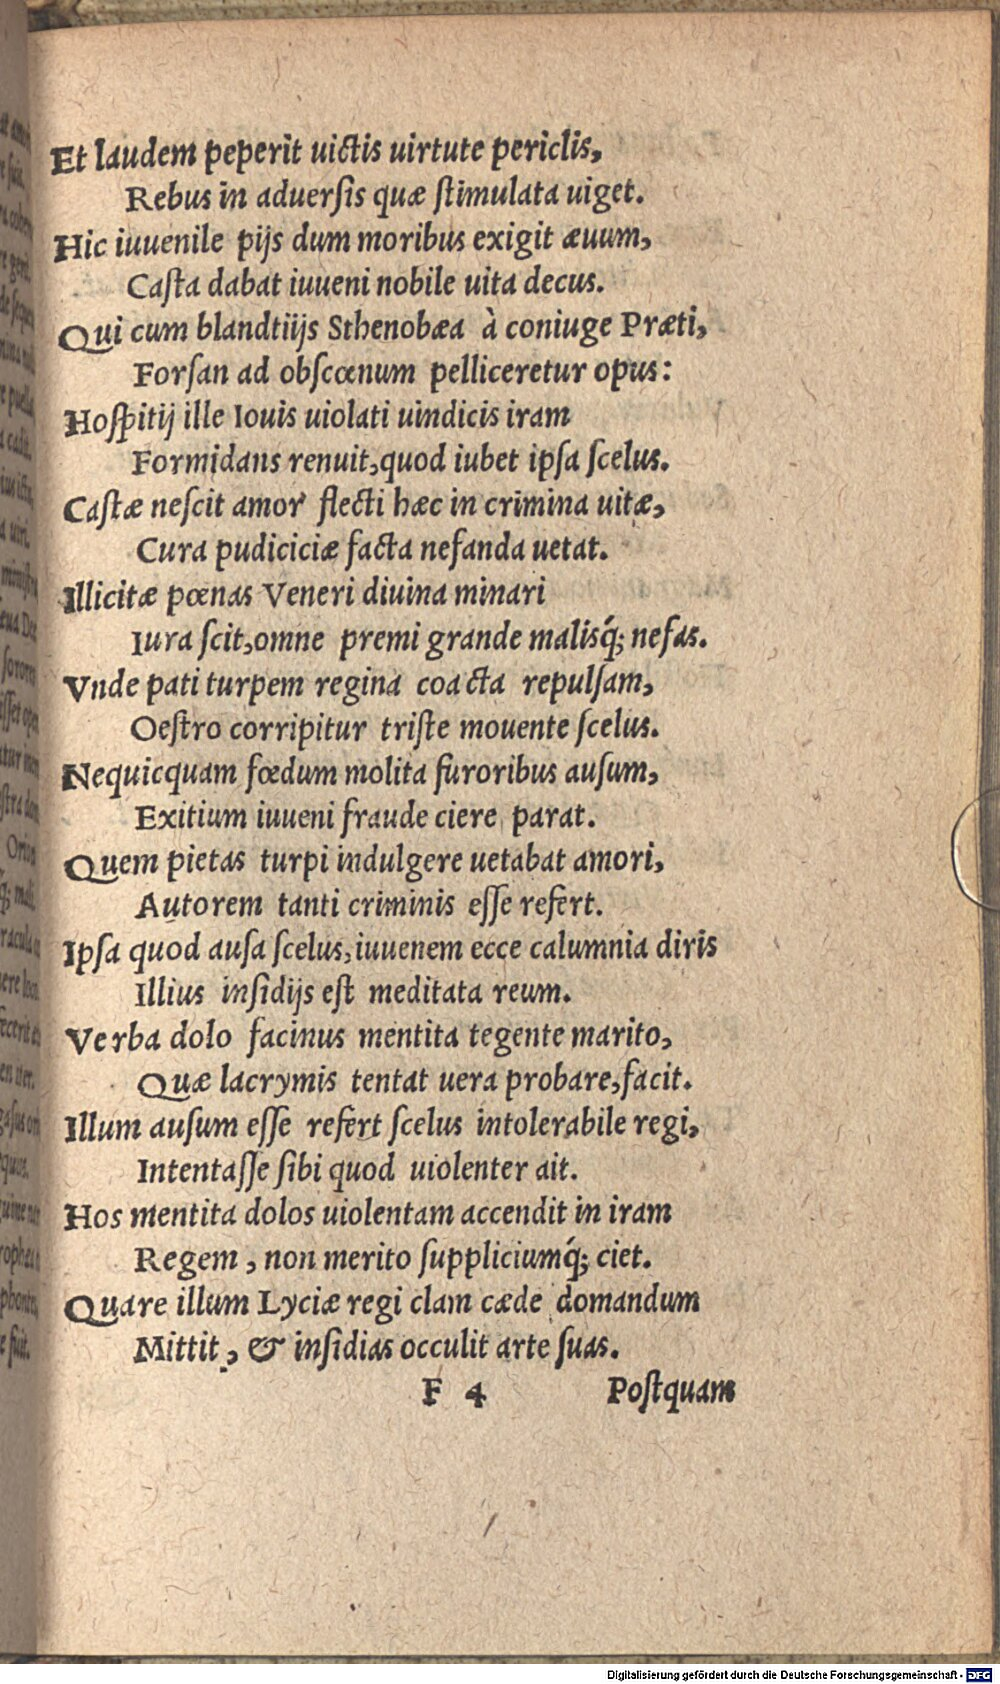 Et laudem peperit uictis uirtute periclis,
Rebus in aduersis quæ ſtimulata uiget.
Hic iuuenile pijs dum moribus exigit æuum,
Caſta dabat iuueni nobile uita decus.
Qui cum blandtiijs Sthenobæa à coniuge Præti,
Forſan ad obſcœnum pelliceretur opus:
Hoſpitij ille Iouis uiolati uindicis iram
Formidans renuit, quod iubet ipſa ſcelus.
Caſtæ neſcit amor flecti hæc in crimina uitæ,
Cura pudiciciæ facta nefanda uetat.
Illicitæ pœnas Veneri diuina minari
Iura ſcit, omne premi grande malisq́; nefas.
Vnde pati turpem regina coacta repulſam,
Oeſtro corripitur triſte mouente ſcelus.
Nequicquam fœdum molita furoribus auſum,
Exitium iuueni fraude ciere parat.
Quem pietas turpi indulgere uetabat amori,
Autorem tanti criminis eſſe refert.
Ipſa quod auſa ſcelus, iuuenem ecce calumnia diris
Illius inſidijs eſt meditata reum.
Verba dolo facinus mentita tegente marito,
Quæ lacrymis tentat uera probare, facit.
Illum auſum eſſe refert ſcelus intolerabile regi,
Intentaſſe ſibi quod uiolenter ait.
Hos mentita dolos uiolentam accendit in iram
Regem, non merito ſuppliciumq́; ciet.
Quare illum Lyciæ regi clam cæde domandum
Mittit, & inſidias occulit arte ſuas.
F 4 Poſtquam
Digitalisierung gefördert durch die Deutsche Forschungsgemeinschaft - DFG